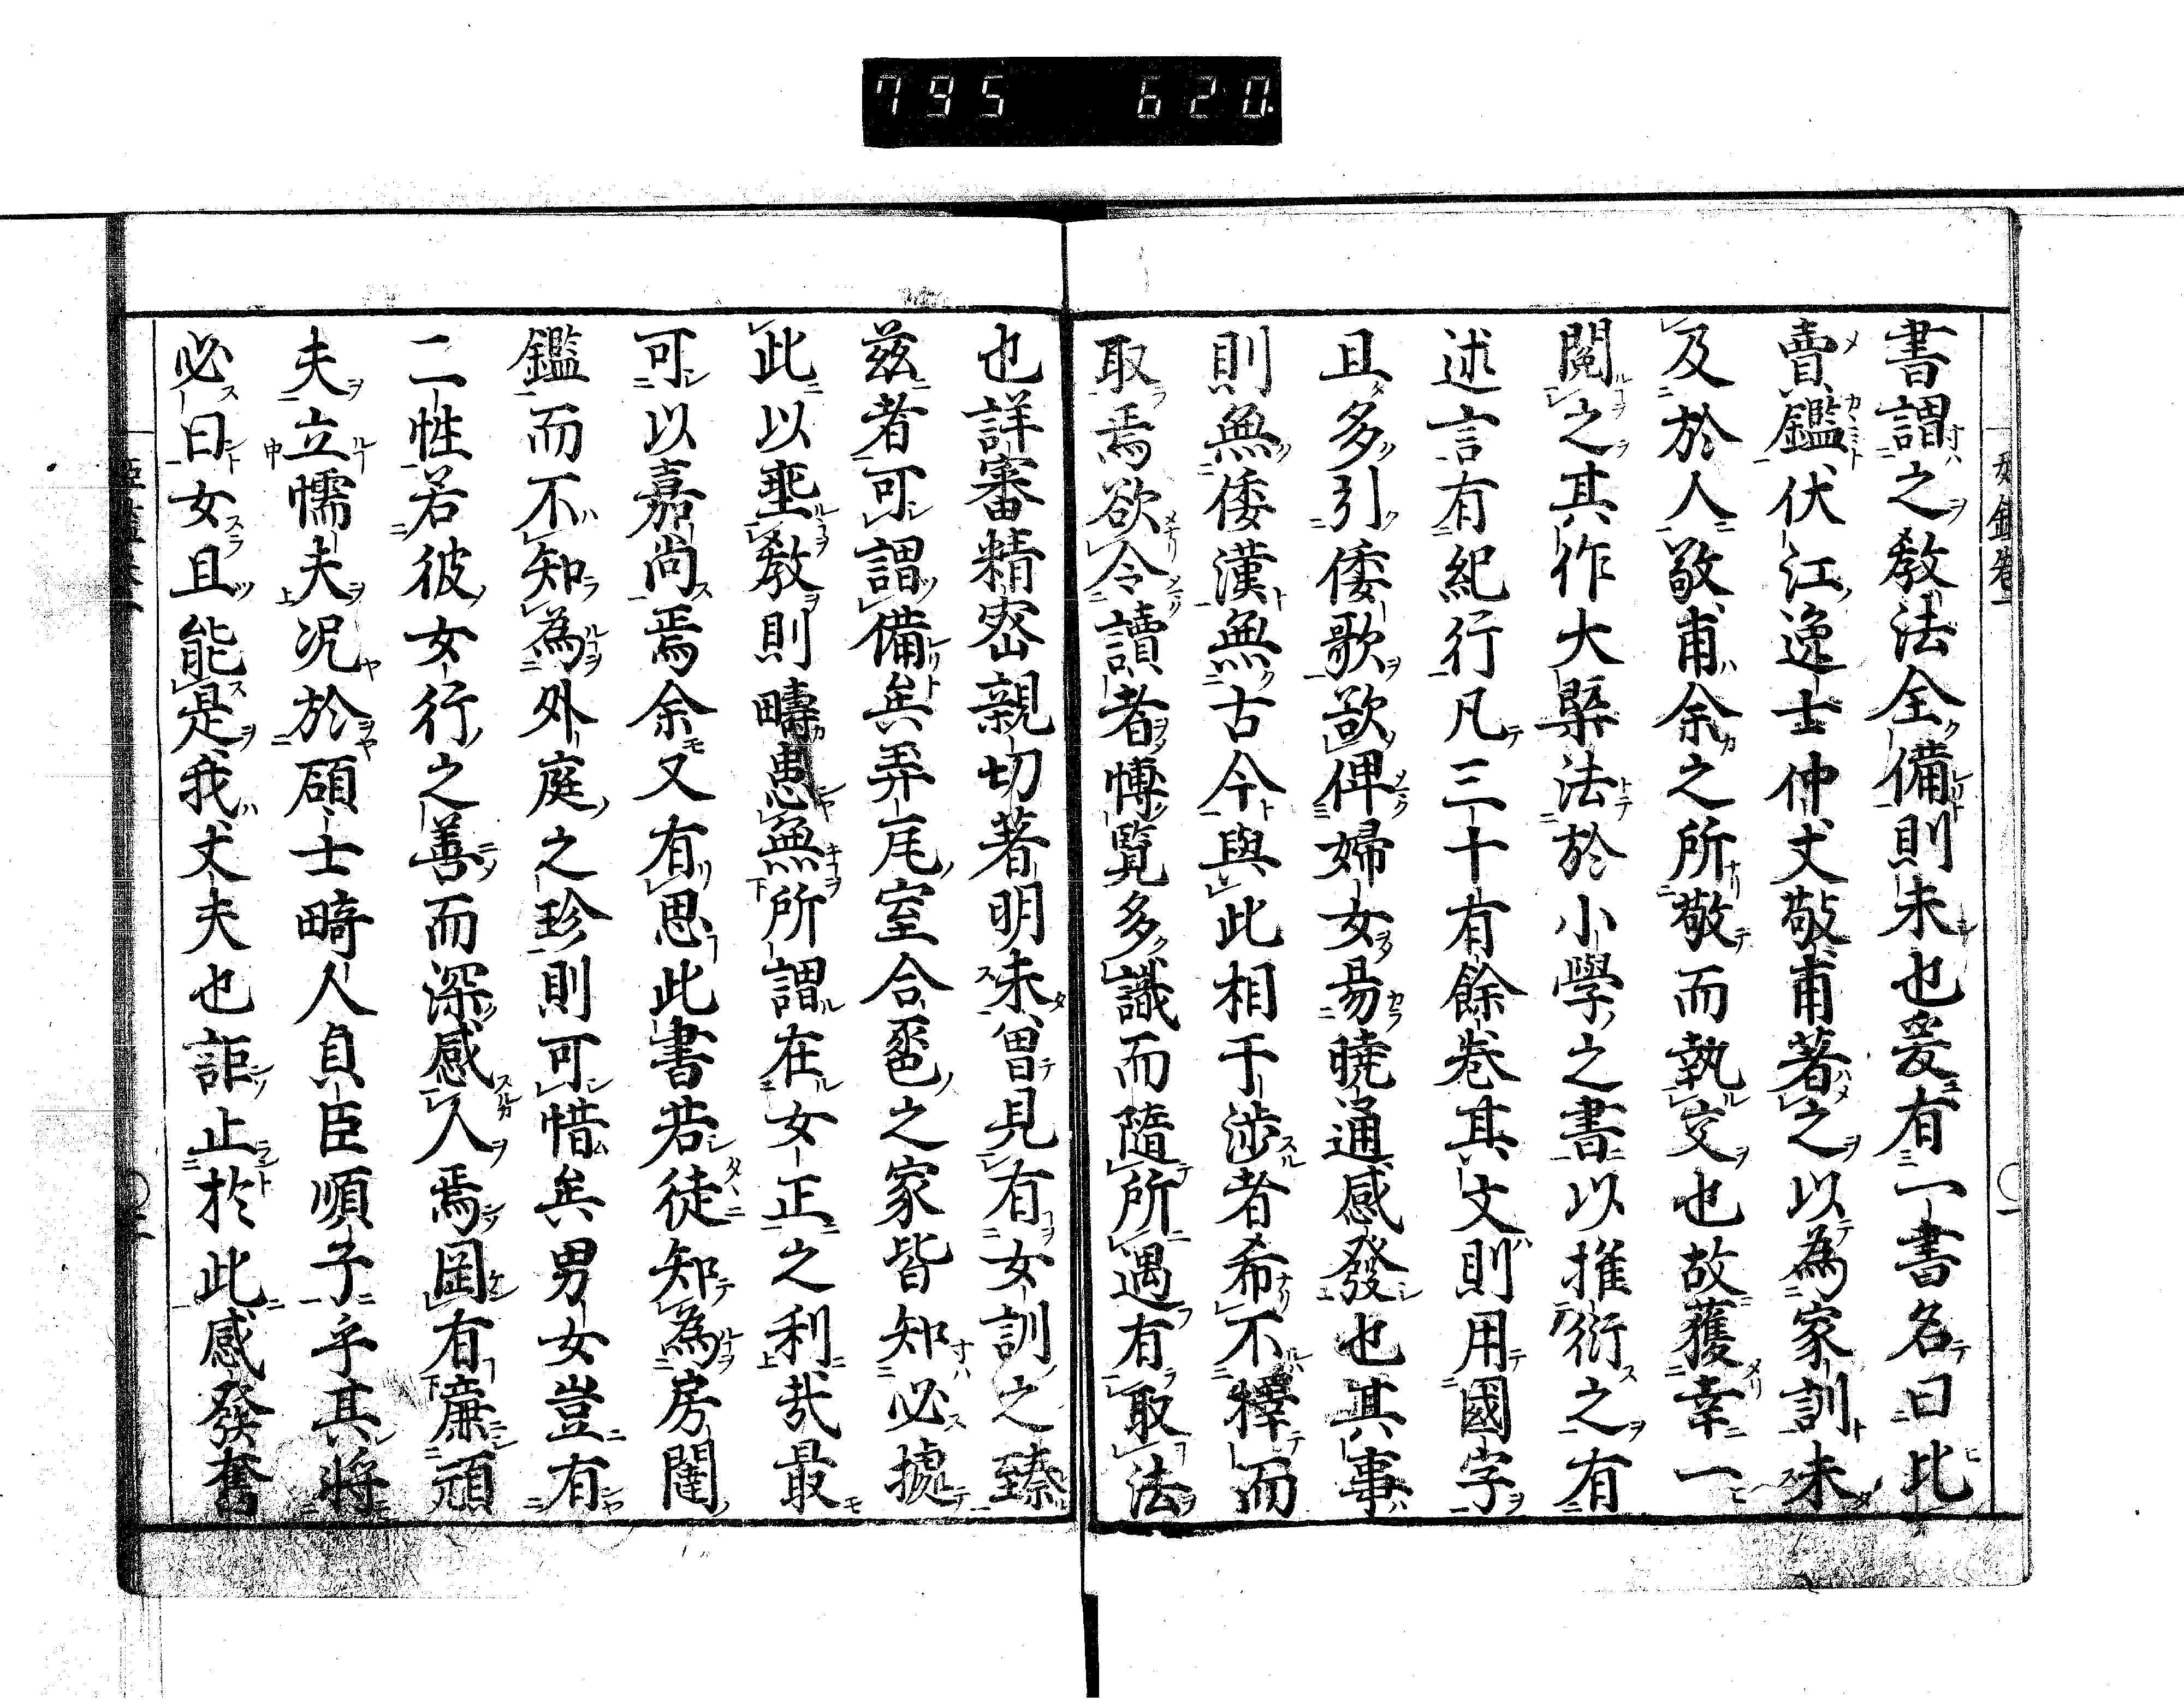 795 620.
書謂之敎法全備則未也爰有一書名曰比
賣鑑伏江逸士仲丈敬甫著之以為家訓未
及於人敬甫余之所敬而執交也故獲幸一
閲之其作大槩法於小學之書以推衍之有
述言有紀行凡三十有餘卷其文則用國字
且多引倭歌欲俾婦女易曉通感發也其事
則無倭漢無古今與此相干渉者希不釋而
取焉欲令讀者愽覧多識而隨所遇有取法
也詳審精宻親切著明未曽見有女訓之臻
兹者可謂備矣弄瓦室合巹之家皆知必據
此以垂敎則疇患無所謂在女正之利㢤最
可以嘉尚焉余又有思此書若徒知為房闈
鑑而不知為外庭之珍則可惜矣男女豈有
二性若彼女行之善而深感人焉固有亷頑
夫立懦夫况於碩士畸人貞臣順子乎其將
必曰女且能是我丈夫也詎止於此感發奮